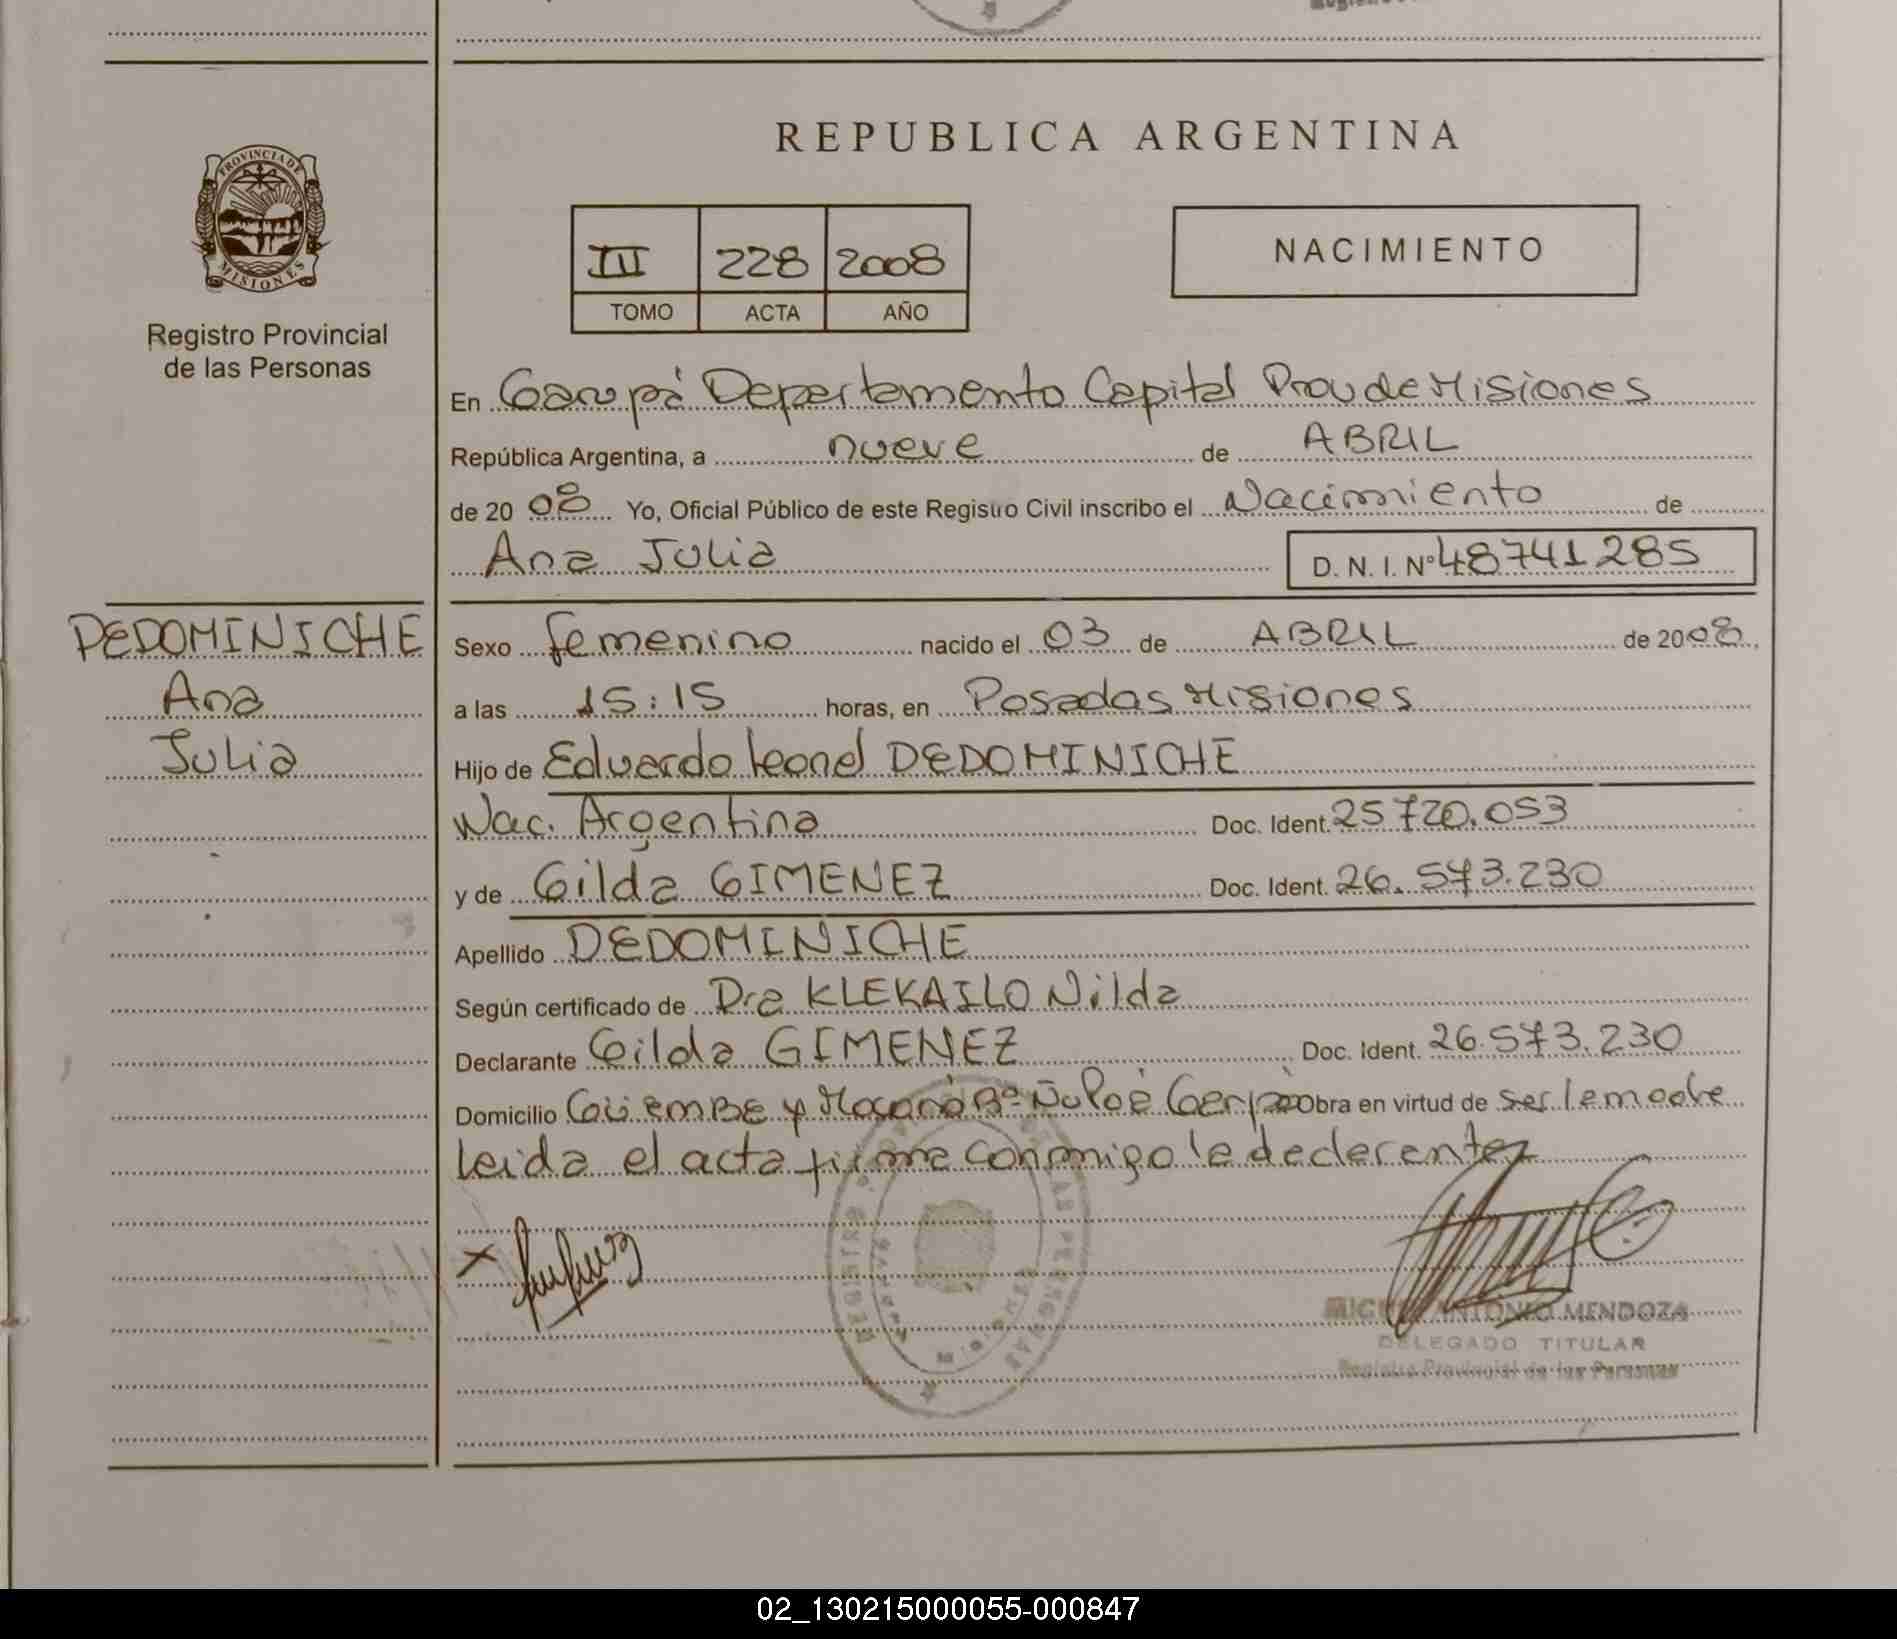 REPUBLICA ARGENTINA
PROVINCIA DE
MISIONES
Registro Provincial
de las Personas
III 228 2008
TOMO ACTA AÑO
NACIMIENTO
En Garupá Departamento Capital Prov de Misiones
República Argentina, a nueve de ABRIL
de 20 08 Yo, Oficial Público de este Registro Civil inscribo el Nacimiento de
Ana Julia D. N. I. Nº 48741285
DEDOMINICHE
Ana
Julia
Sexo femenino nacido el 03 de ABRIL de 2008
a las 15:15 horas, en Posadas Misiones
Hijo de Eduardo Leonel DEDOMINICHE
Nac. Argentina Doc. Ident. 25720.053
y de Gilda GIMENEZ Doc. Ident. 26.573.230
Apellido DEDOMINICHE
Según certificado de Dra KLEKAILO Nilda
Declarante Gilda GIMENEZ Doc. Ident. 26.573.230
Domicilio y Bº Obra en virtud de ser la madre
Leida el acta firma conmigo la declarante
MIGUEL ANTONIO MENDOZA
DELEGADO TITULAR
Registro Provincial de las Personas
02_130215000055-000847